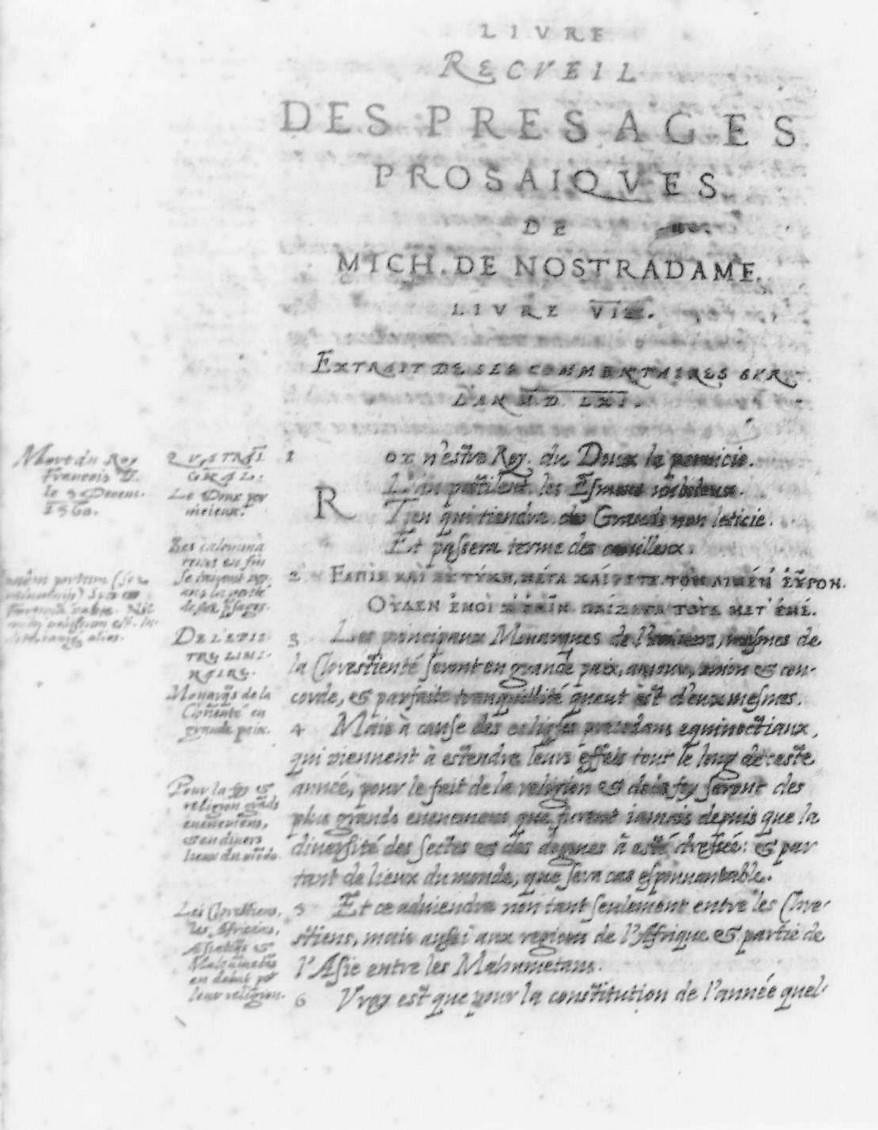 LIVRE
RECVEIL
DES PRESAGES
PROSAIQVES
DE
MICH. DE NOSTRADAME.
LIVRE
EXTRAIT DE SES COMMENTAIRES SVR
L'AN M.D. LXI.
Mort du Roy
François II.
le 5 Decem.
1560.
QVATRAI
GRAL.
Le Doux per
nicieux.
1
Roy n'estre Roy. du Doux la pernicie.
L'an pestilent. les
Tien qui tiendra. des Grands non leticie.
Et passera terme des
en fin
de ses
2 ΕΛΠΙΣ ΚΑΙ ΣΥ ΤΥΧΗ, ΜΕΓΑ ΧΑΙΡΕΤΕ ΤΟΝ ΛΙΜΕΝ ΕΥΡΟΝ.
ΟΥΔΕΝ ΕΜΟΙ ΠΑΙΖΕΤΕ ΤΟΥΣ ΜΕΤ' ΕΜΕ.
DE L'EPIS
TRE LIMI-
NAIRE.
3 Les principaux Monarques de l'vnivers, mesmes de
la Chrestienté seront en grande paix, amour, vnion & con-
corde, & parfaite tranquillité quant est d'eux mesmes.
Monarqs de la
Chrestienté en
grande paix.
4 Mais à cause des eclipses precedans equinoctiaux,
qui viennent à estendre leurs effets tout le long de ceste
année, pour le fait de la religion & de la foy seront des
plus grands euenemens que furent iamais depuis que la
diuersité des sectes & des dogmes à esté dressée: & par
tant de lieux du monde, que sera cas espouuantable.
Pour la foy &
religion grāds
euenemens,
& en diuers
lieux du mōde.
5 Et ce aduiendra non tant seulement entre les Chre-
stiens, mais aussi aux regions de l'Afrique & partie de
l'Asie entre les Mahumetans.
Les Chrestiens,
les Africains,
Asiatiqs &
Mahumetās
en debat pr
leur religion.
6 Vray est que pour la constitution de l'année quel-